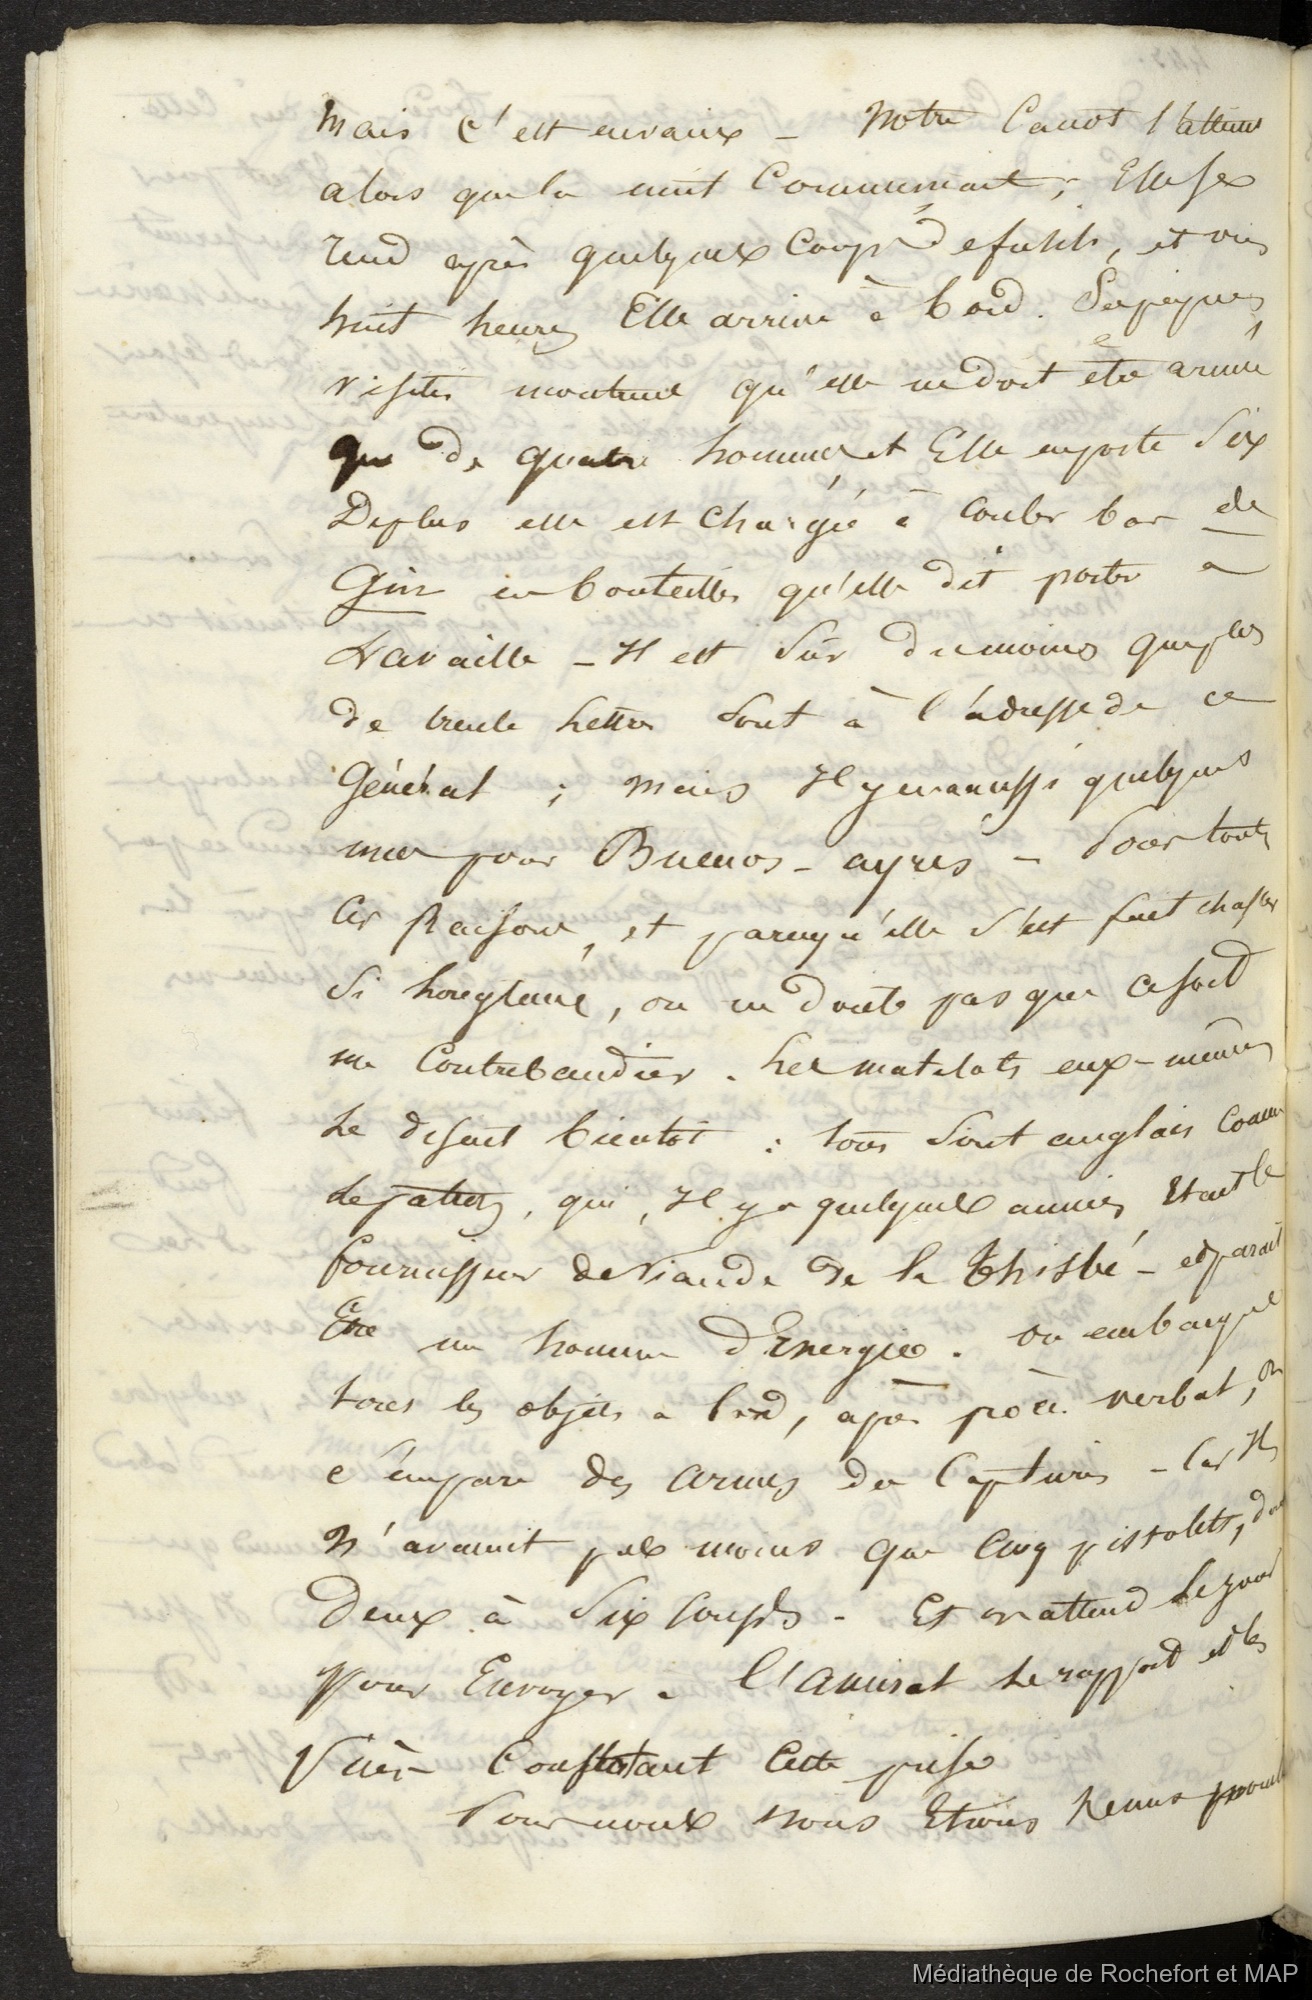 Mais c'est envain – Notre Canot l'atteint
alors que la nuit Commençait; Elle se
rend après quelques Coups de fusils, et vers
huit heures Elle arrive à bord. Ses papiers
visités montrent qu'elle ne doit être armée
que de quatre hommes et Elle en porte Six
Deplus elle est Chargée à Couler bas de
Gin en bouteilles qu'elle dit porter à
Lavaille – Il est Sûr du moins que plus
de trente Lettres Sont à l'adresse de ce
Général ; mais Il y en a aussi quelques
unes pour Buenos-ayres – Pour toutes
Ces Raisons, et parcequ'elle S'est fait chasser
Si longtems, on ne doute pas que ce soit
un Contrebandier. Les matelots eux-mêmes
Le disent bientôt : tous Sont anglais Comme
Le patron, qui, Il y a quelques années Etant le
fournisseur de Viande de la Thisbé – et parait
Etre un homme d'Energie. On embarque
tous les objets à bord, après procès verbal, on
s'empare des armes des Capturés – Car Ils
N'avaient pas moins que Cinq pistolets, dont
Deux à Six Coups – Et on attend Le jour
Pour Envoyer à l'Amiral Le rapport et les
Pièces Constatant Cette prise
Pour nous nous Etions Venus pour
Médiathèque de Rochefort et MAP